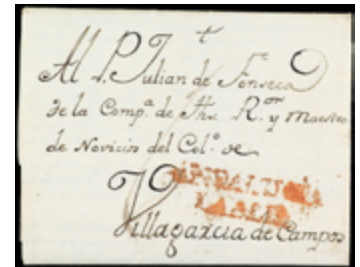 +
Al P. Julian de Fonseca
de la Comp.ª de Jhs. R.or y Maestro
de Novicios del Col.o de
ANDALUCIA
LA ALTA
Villagarcia de Campos